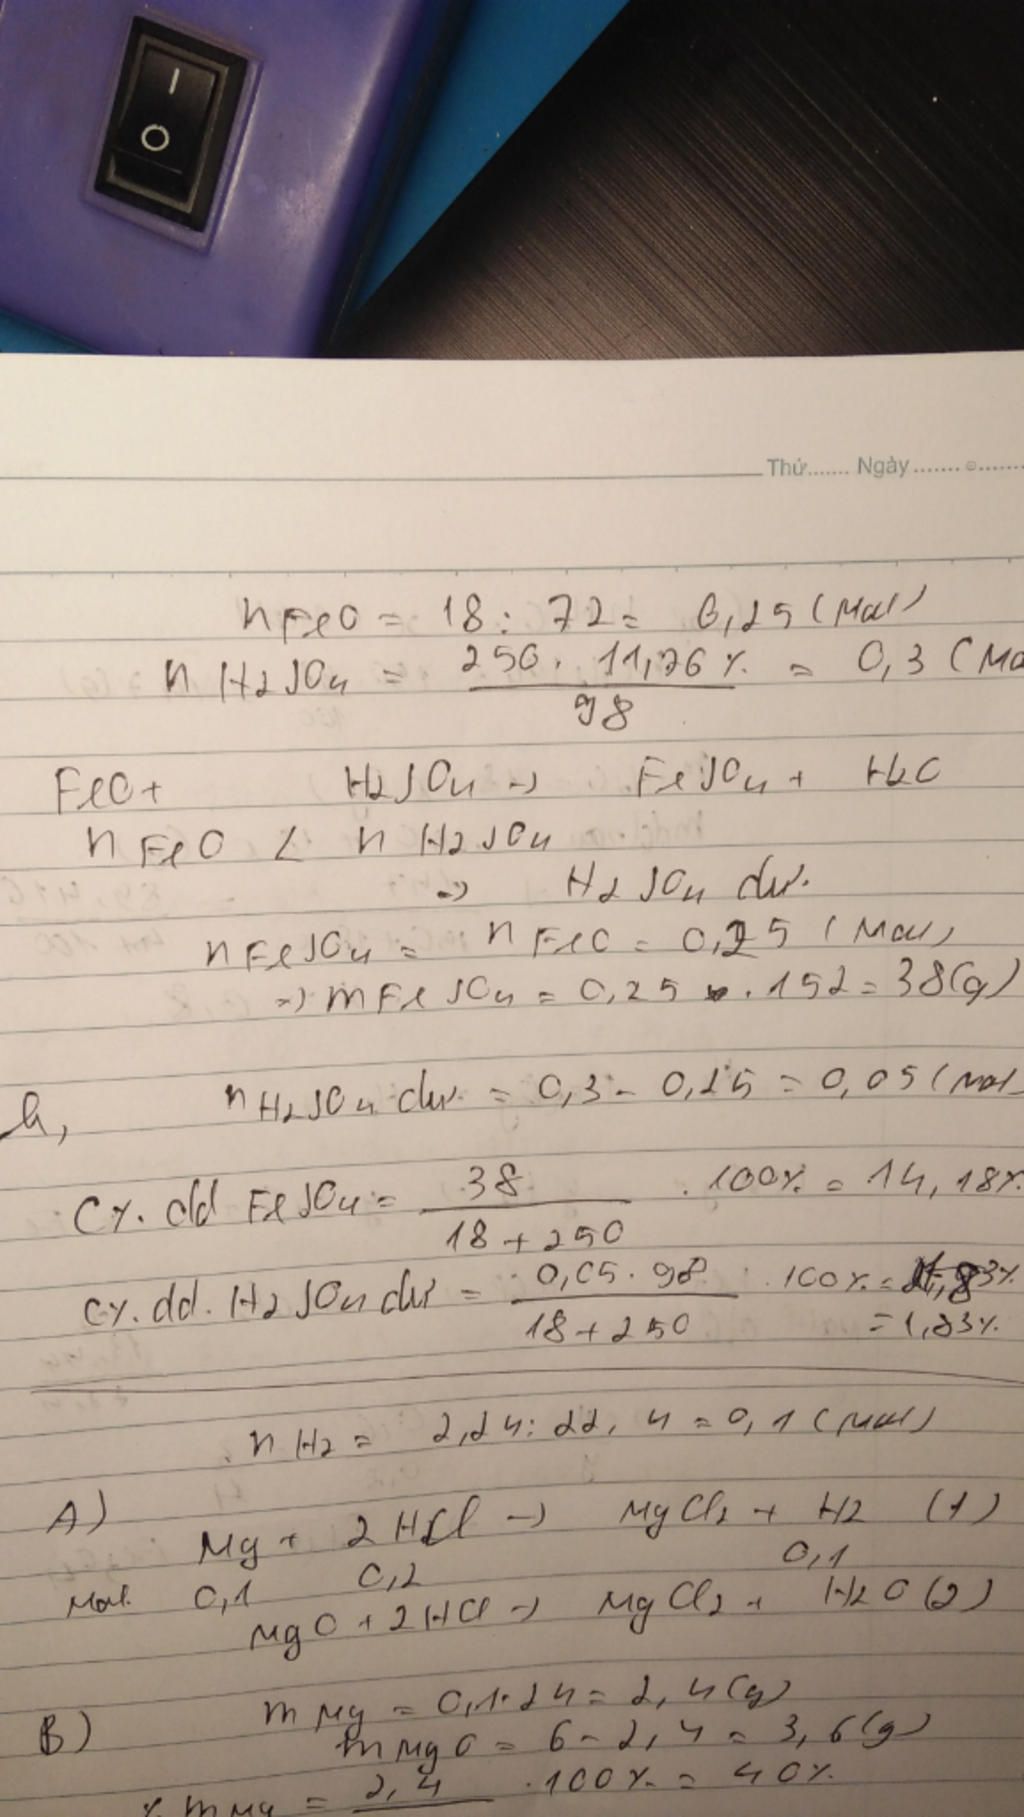 I
O
Thứ....... Ngày.......
nFeO = 18 : 72 = 0,25 (Mol)
nH2SO4 = 250 . 11,76% / 98 = 0,3 (Mo
FeO + H2SO4 -> FeSO4 + H2O
nFeO < nH2SO4
=> H2SO4 dư.
nFeSO4 = nFeO = 0,25 (Mol)
=> mFeSO4 = 0,25 . 152 = 38(g)
b, nH2SO4 dư = 0,3 - 0,25 = 0,05 (Mol
C%. dd FeSO4 = 38 / 18 + 250 . 100% = 14,18%
C%. dd. H2SO4 dư = 0,05 . 98 / 18 + 250 . 100% =
= 1,83%
nH2 = 2,24 : 22,4 = 0,1 (Mol)
A)
Mg + 2HCl -> MgCl2 + H2 (1)
Mol 0,1 0,2 0,1
MgO + 2HCl -> MgCl2 + H2O (2)
B) mMg = 0,1 . 24 = 2,4 (g)
mMgO = 6 - 2,4 = 3,6 (g)
% mMg = 2,4 . 100% = 40%